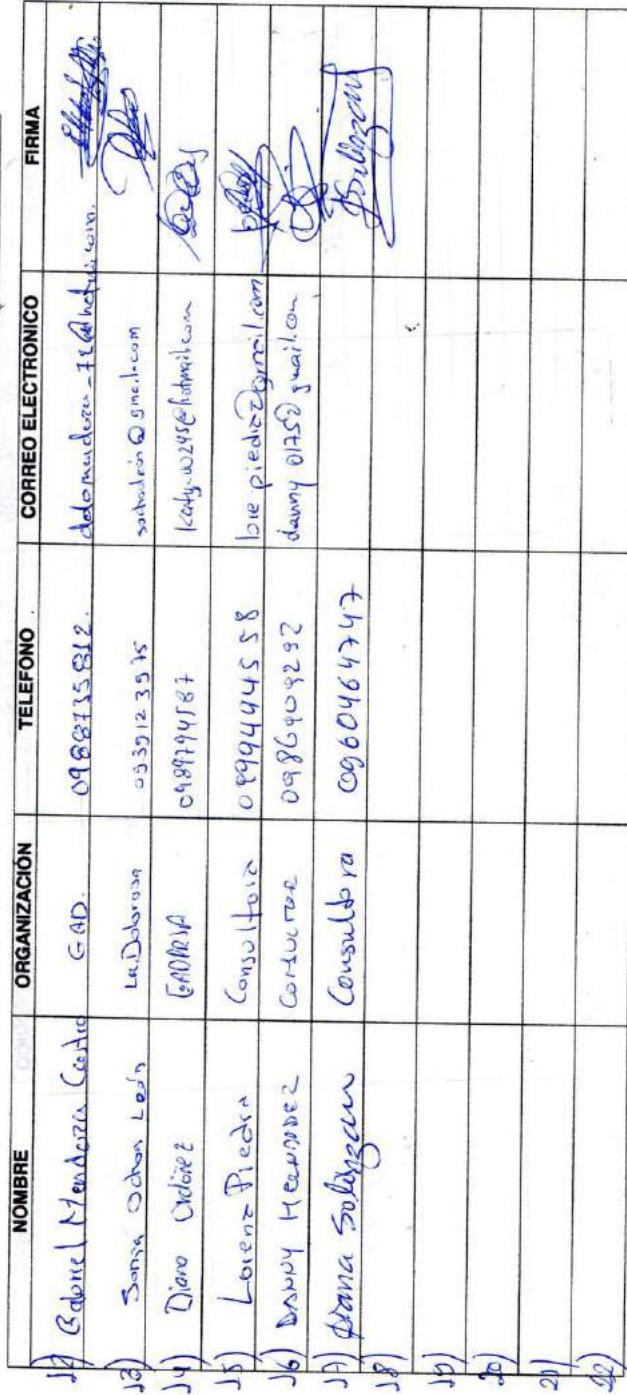 NOMBRE ORGANIZACIÓN TELEFONO CORREO ELECTRONICO FIRMA
12) Gabriel Mendoza Castro GAD. 0988735812.
13) Sonia Ochoa León La Dolorosa 0939123975 @gmail.com
14) Diana Ordóñez 0989794587 @hotmail.com
15) Lorena Piedra Consultora 0999444558 lorepiedra2@gmail.com
16) DANNY HERNANDEZ CONDUCTOR 0986909292 danny01750@gmail.com
17) Diana Solórzano Consultora 0960464747
18)
19)
20)
21)
22)